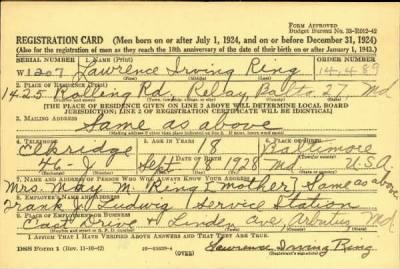 FORM APPROVED
Budget Bureau No. 33-R012-42
REGISTRATION CARD (Men born on or after July 1, 1924, and on or before December 31, 1924)
(Also for the registration of men as they reach the 18th anniversary of the date of their birth on or after January 1, 1943.)
SERIAL NUMBER 1. NAME (Print) ORDER NUMBER
W 1207 Lawrence Irving Ring 14,489
2. PLACE OF RESIDENCE (Print)
1425 Rolling Rd, Relay, Balto. 27 Md
[THE PLACE OF RESIDENCE GIVEN ON LINE 2 ABOVE WILL DETERMINE LOCAL BOARD
JURISDICTION; LINE 2 OF REGISTRATION CERTIFICATE WILL BE IDENTICAL]
3. MAILING ADDRESS
Same as above
[Mailing address if other than place indicated on line 2. If same, insert word same]
4. TELEPHONE 5. AGE IN YEARS 6. PLACE OF BIRTH
Elkridge 18 Baltimore
DATE OF BIRTH
46-J Sept 1928 Md U.S.A
7. NAME AND ADDRESS OF PERSON WHO WILL ALWAYS KNOW YOUR ADDRESS
Mrs. May M. Ring [mother] Same as above
8. EMPLOYER'S NAME AND ADDRESS
Frank W Ludwig Service Station
9. PLACE OF EMPLOYMENT OR BUSINESS
East Drive & Linden ave, Arbutus Md
I AFFIRM THAT I HAVE VERIFIED ABOVE ANSWERS AND THAT THEY ARE TRUE.
DSS Form 1 (Rev. 11-16-42) (OVER) Lawrence Irving Ring